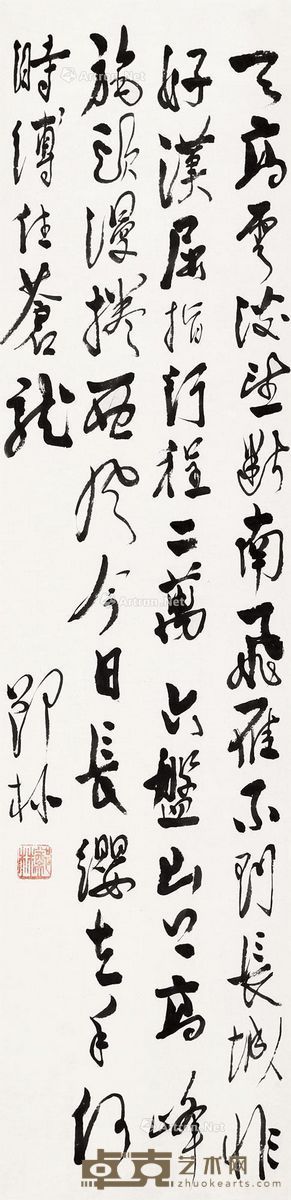 天高雲淡望斷南飛雁不到長城非
好漢屈指行程二萬六盤山上高峰
旄頭漫捲西風今日長纓在手何
時縛住蒼龍
鄧林
Artron.Net
卓克艺术网
www.zhuokearts.com